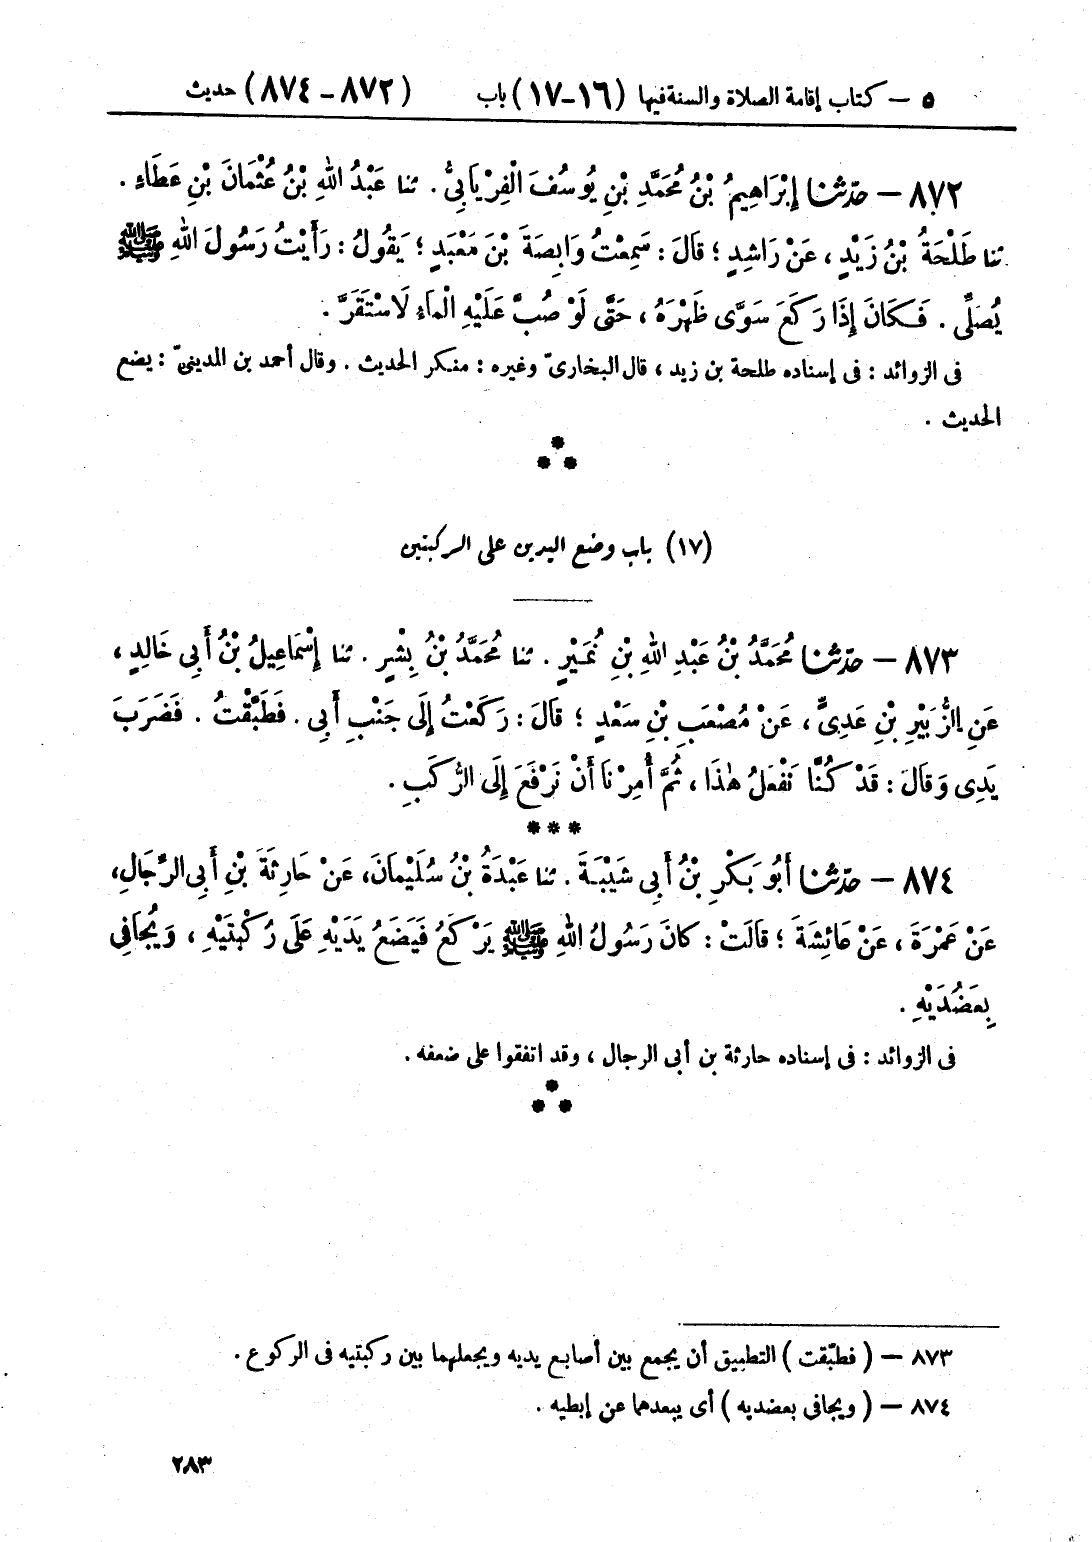 ٥ – كتاب إقامة الصلاة والسنة فيها (١٦-١٧) باب (٨٧٢ – ٨٧٤) حديث
٨٧٢ – حدّثنا إِبْرَاهِيمُ بْنُ مُحَمَّدِ بْنِ يُوسُفَ الْفِرْيَابِيُّ . ثنا عَبْدُ اللهِ بْنُ عُثْمَانَ بْنِ عَطَاءٍ .
ثنا طَلْحَةُ بْنُ زَيْدٍ ، عَنْ رَاشِدٍ ؛ قَالَ : سَمِعْتُ وَابِصَةَ بْنَ مَعْبَدٍ ؛ يَقُولُ : رَأَيْتُ رَسُولَ اللهِ ﷺ
يُصَلِّى . فَكَانَ إِذَا رَكَعَ سَوَّى ظَهْرَهُ ، حَتَّى لَوْ صُبَّ عَلَيْهِ الْمَاءُ لَاسْتَقَرَّ .
فى الزوائد : فى إسناده طلحة بن زيد ، قال البخارىّ وغيره : منكر الحديث . وقال أحمد بن المدينىّ : يضع
الحديث .
*
* *
(١٧) باب وضع اليدين على الركبتين
٨٧٣ – حدّثنا مُحَمَّدُ بْنُ عَبْدِ اللهِ بْنِ نُمَيْرٍ . ثنا مُحَمَّدُ بْنُ بِشْرٍ . ثنا إِسْمَاعِيلُ بْنُ أَبِى خَالِدٍ ،
عَنِ الزُّبَيْرِ بْنِ عَدِىٍّ ، عَنْ مُصْعَبِ بْنِ سَعْدٍ ؛ قَالَ : رَكَعْتُ إِلَى جَنْبِ أَبِى . فَطَبَّقْتُ . فَضَرَبَ
يَدِى وَقَالَ : قَدْ كُنَّا نَفْعَلُ هٰذَا ، ثُمَّ أُمِرْنَا أَنْ نَرْفَعَ إِلَى الرُّكَبِ .
* * *
٨٧٤ – حدّثنا أَبُو بَكْرِ بْنُ أَبِى شَيْبَةَ . ثنا عَبْدَةُ بْنُ سُلَيْمَانَ، عَنْ حَارِثَةَ بْنِ أَبِى الرِّجَالِ،
عَنْ عَمْرَةَ ، عَنْ عَائِشَةَ ؛ قَالَتْ : كَانَ رَسُولُ اللهِ ﷺ يَرْكَعُ فَيَضَعُ يَدَيْهِ عَلَى رُكْبَتَيْهِ ، وَيُجَافِى
بِعَضُدَيْهِ .
فى الزوائد : فى إسناده حارثة بن أبى الرجال ، وقد اتفقوا على ضعفه .
*
* *
٨٧٣ – ( فطبّقت ) التطبيق أن يجمع بين أصابع يديه ويجعلهما بين ركبتيه فى الركوع .
٨٧٤ – ( ويجافى بعضديه ) أى يبعدهما عن إبطيه .
٢٨٣